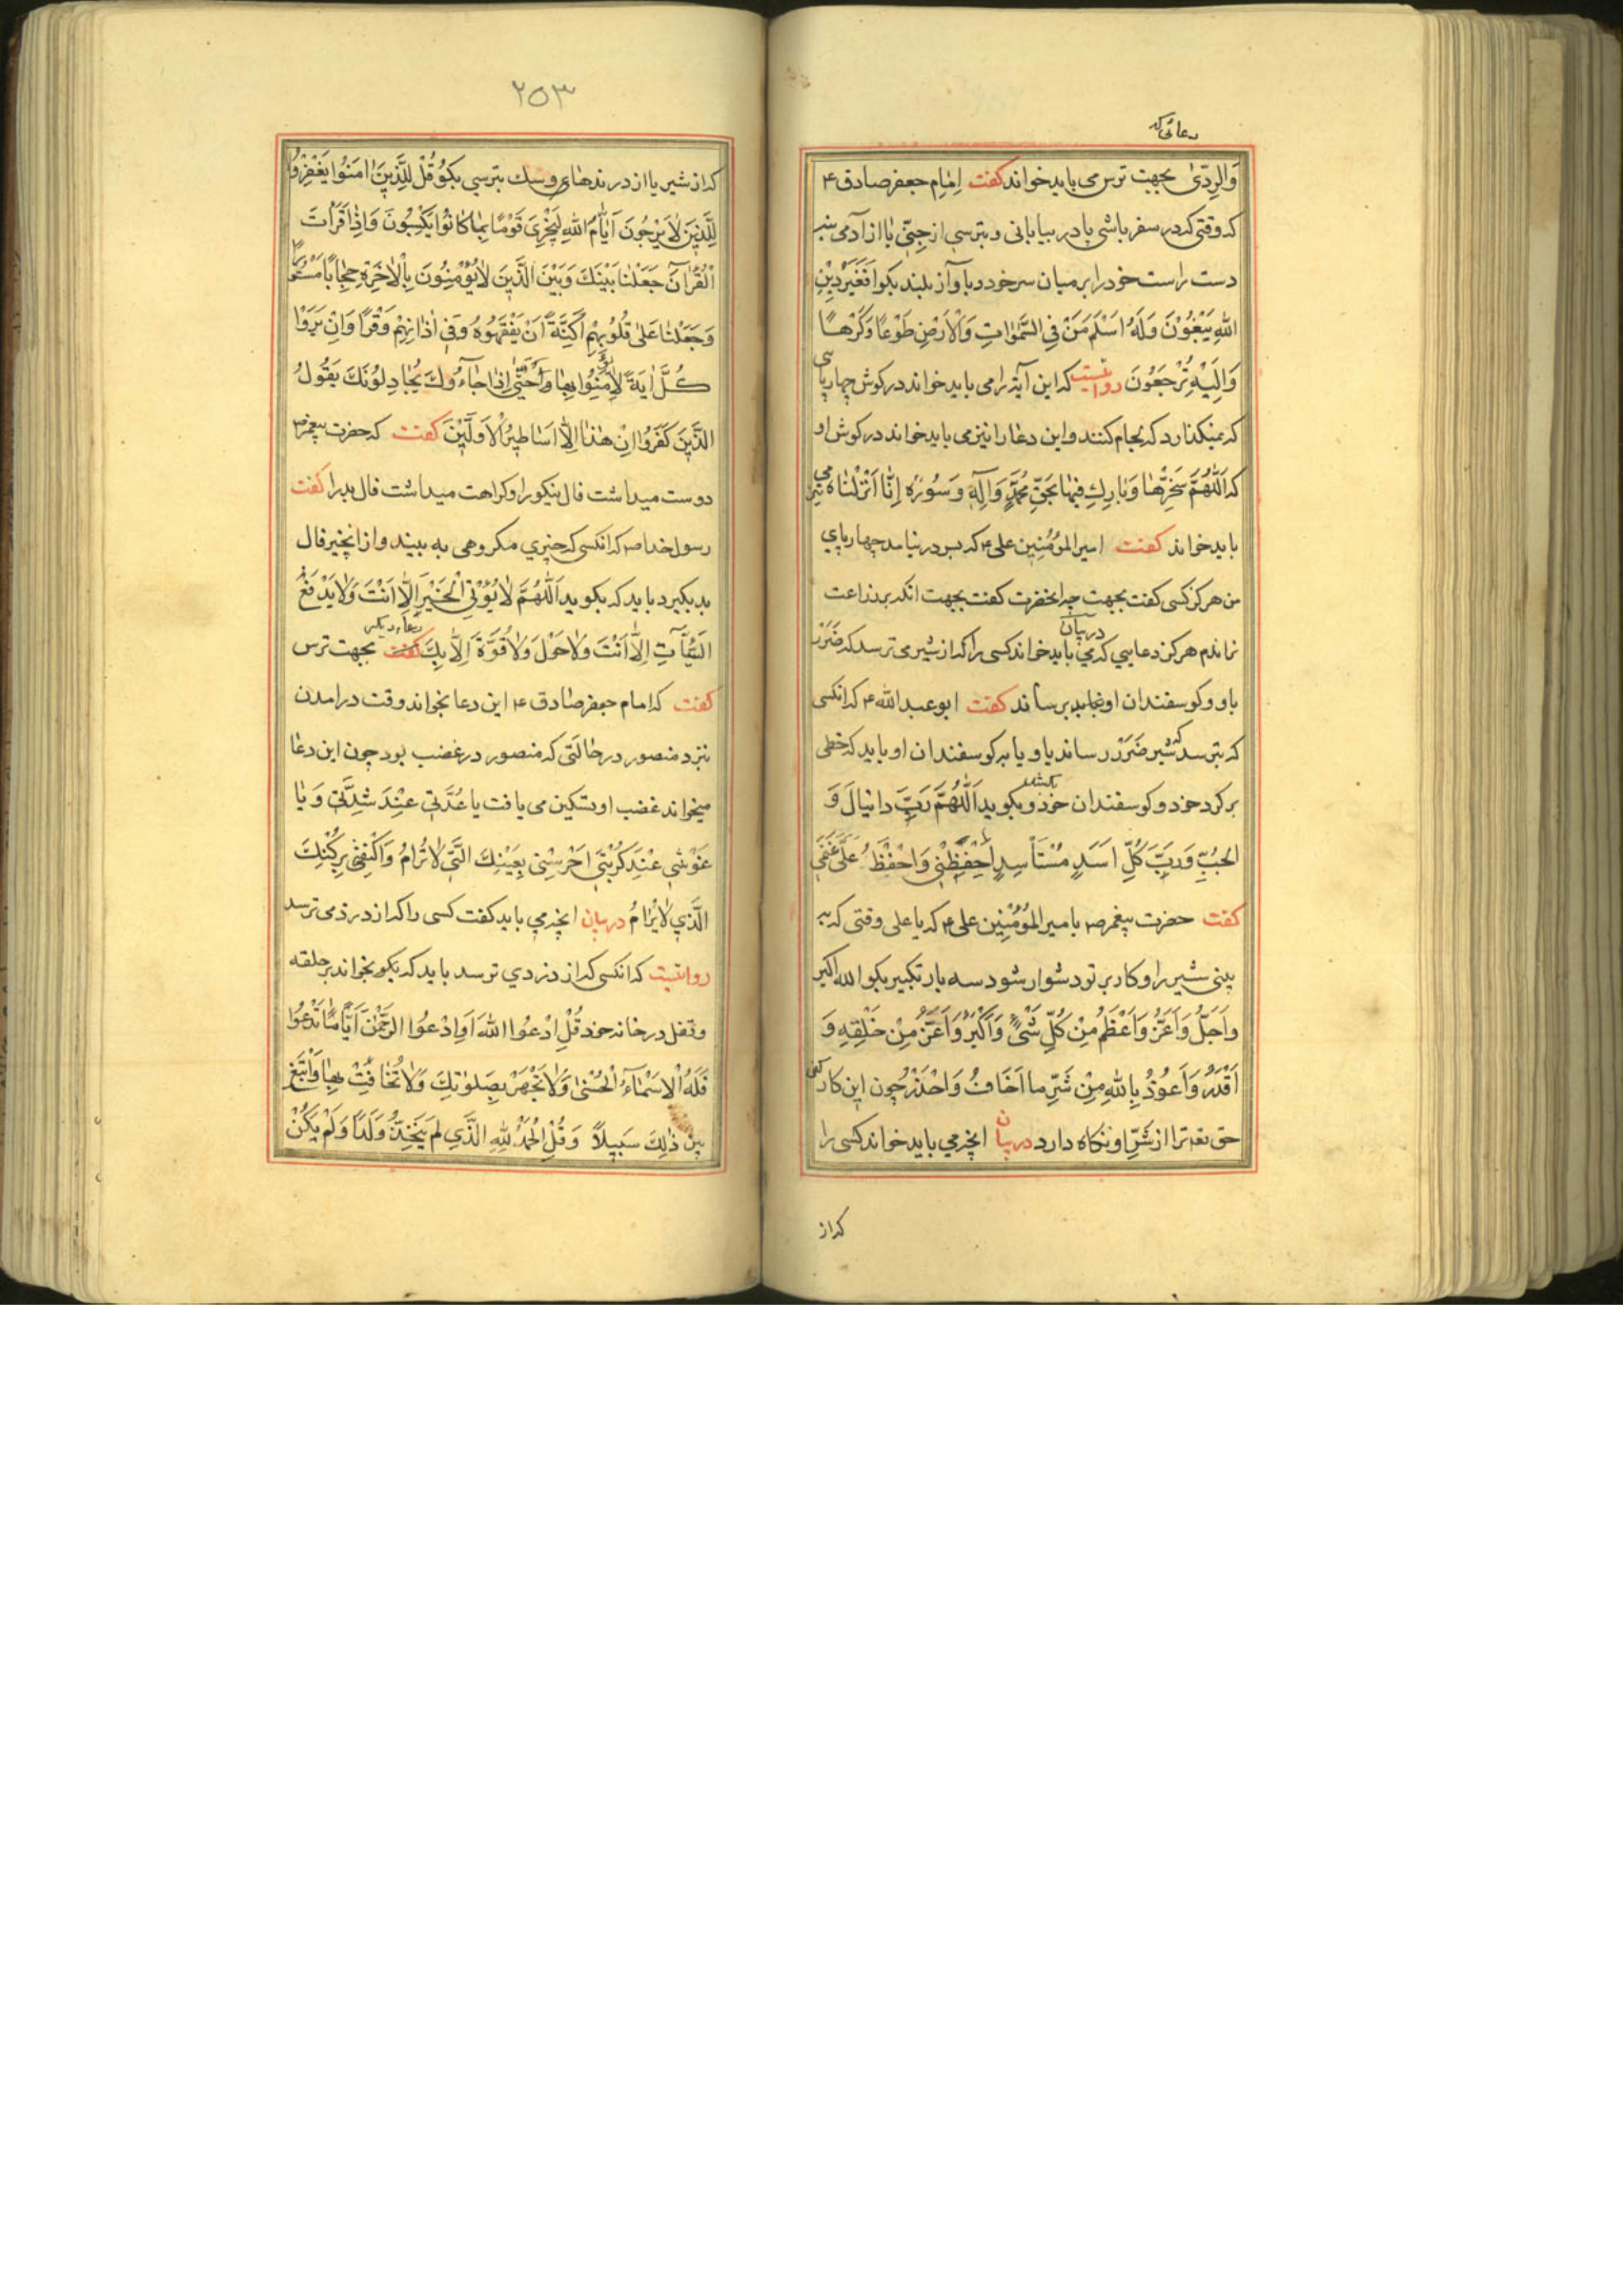 دعائی که
وَالرِّدیٰ بجهت ترس می باید خواند کفت اِمٰامِ جعفر صادق ع
که وقتی که در سفر باشی یا در بیابانی و بترسی از جِنّی یٰا از آدمی بنه
دست راست خود را بر میان سر خود و باواز بلند بکو اَفَغَیْرَ دٖینِ
اللّٰهِ یَبْغُوْنَ وَلَهُ اَسْلَمَ مَنْ فِی السَّمٰوٰاتِ وَالْاَرْضِ طَوْعًا وَكَرْهًا
وَاِلَیْهِ تُرْجَعُونَ روایتست که این آیة را می باید خواند در کوش چهارپای
که نمیکذارد که لجام کنند و این دعٰا را نیز می باید خواند در کوش او
که اَللّٰهُمَّ سَخِّرْهٰا وَبٰارِكِ فٖیهٰا بِحَقِّ مُحَمَّدٍ وَاٰلِهٖ وَ سُورَه اِنّٰا اَنْزَلْنٰاهُ نیز می
باید خواند کفت امیر المؤمنین علی ع که بسر در نیامد چهارپاي
من هرکز کسی کفت بجهت چه انحضرت کفت بجهت انکه بر زراعت
نراندم هرکز در بیان دعایی که می باید خواند کسی را که از شیر می ترسد که ضَرَر
باو و کوسفندان او برساند کفت ابو عبد الله ع که انکسی
که بترسد که شیر ضَرَر رساند باو یا به کوسفندان او باید که خطی
بر کرد خود و کوسفندان خود بکشد و بکوید اَللّٰهُمَّ رَبَّ دانیٰالَ وَ
الْجُبِّ وَرَبَّ كُلِّ اَسَدٍ مُسْتَأْسِدٍ اِحْفَظْنٖی وَاحْفَظْ عَلَیَّ غَنَمٖی
کفت حضرت پیغمبر ص با میر المؤمنین علی ع که یا علی وقتی که به
بینی شیر را و کار بر تو دشوار شود سه بار تکبیر بکو الله اکبر
وَاَجَلُّ وَاَعَزُّ وَاَعْظَمُ مِنْ كُلِّ شَیْءٍ وَاَكْبَرُ وَاَعَزُّ مِنْ خَلْقِهٖ وَ
اَقْدَرُ وَاَعُوذُ بِاللّٰهِ مِنْ شَرِّ ما اَخٰافُ وَاَحْذَرُ چون این کار کنی
حق تعه ترا از شَرِّ او نکاه دارد در بیان انچه می باید خواند کسی را
که از
۲۵۳
که از شیر یا از درندهای و سك بترسی بکو قُلْ لِلَّذٖینَ اٰمَنُوا یَغْفِرُوا
لِلَّذٖینَ لٰا یَرْجُونَ اَیّٰامَ اللّٰهِ لِیَجْزِیَ قَوْمًا بِمٰا كٰانُوا یَكْسِبُونَ وَاِذٰا قَرَأْتَ
الْقُرْاٰنَ جَعَلْنٰا بَیْنَكَ وَبَیْنَ الَّذٖینَ لٰا یُؤْمِنُونَ بِالْاٰخِرَةِ حِجٰابًا مَسْتُورًا
وَجَعَلْنٰا عَلٰی قُلُوبِهِمْ اَكِنَّةً اَنْ یَفْقَهُوهُ وَفٖی اٰذٰانِهِمْ وَقْرًا وَاِنْ یَرَوْا
كُلَّ اٰیَةً لٰا یُؤْمِنُوا بِهٰا حَتّٰی اِذٰا جٰاءُوكَ یُجٰادِلُونَكَ یَقُولُ
الَّذٖینَ كَفَرُوا اِنْ هٰذٰا اِلّٰا اَسٰاطٖیرُ الْاَوَّلٖینَ کفت که حضرت پیغمبر ص
دوست میداشت فال نیکو را و کراهت میداشت فال بد را کفت
رسول خدا ص که انکسی که چیزي مکروهی به بیند و از انچیز فال
بد بکیرد باید که بکوید اَللّٰهُمَّ لٰا یُؤْتِی الْخَیْرَ اِلّٰا اَنْتَ وَلٰا یَدْفَعُ
السَّیِّئٰاتِ اِلّٰا اَنْتَ وَلٰا حَوْلَ وَلٰا قُوَّةَ اِلّٰا بِكَ دعاء دیکر بجهت ترس
کفت که امام جعفر صٰادق ع این دعا بخواند وقت در امدن
بنزد منصور در حٰالَتی که منصور در غضب بود چون این دعٰا
میخواند غضب او تسکین می یافت یا عُدَّتٖی عِنْدَ شِدَّتٖی وَیٰا
غَوْثٖی عِنْدَ كُرْبَتٖی اُحْرُسْنٖی بِعَیْنِكَ الَّتٖی لٰا تَنٰامُ وَاكْنِفْنٖی بِرُكْنِكَ
الَّذٖی لٰا یُرٰامُ در بیان انچه می باید کفت کسی را که از دزد می ترسد
روایتست که انکسی که از دزدي ترسد باید که بکو بخواند بر حلقه
و قفل در خانه خود قُلِ ادْعُوا اللّٰهَ اَوِ ادْعُوا الرَّحْمٰنَ اَیًّا مٰا تَدْعُوا
فَلَهُ الْاَسْمٰاءُ الْحُسْنٰی وَلٰا تَجْهَرْ بِصَلٰوتِكَ وَلٰا تُخٰافِتْ بِهٰا وَابْتَغِ
بَیْنَ ذٰلِكَ سَبٖیلًا وَ قُلِ الْحَمْدُ لِلّٰهِ الَّذٖی لَمْ یَتَّخِذْ وَلَدًا وَلَمْ یَكُنْ